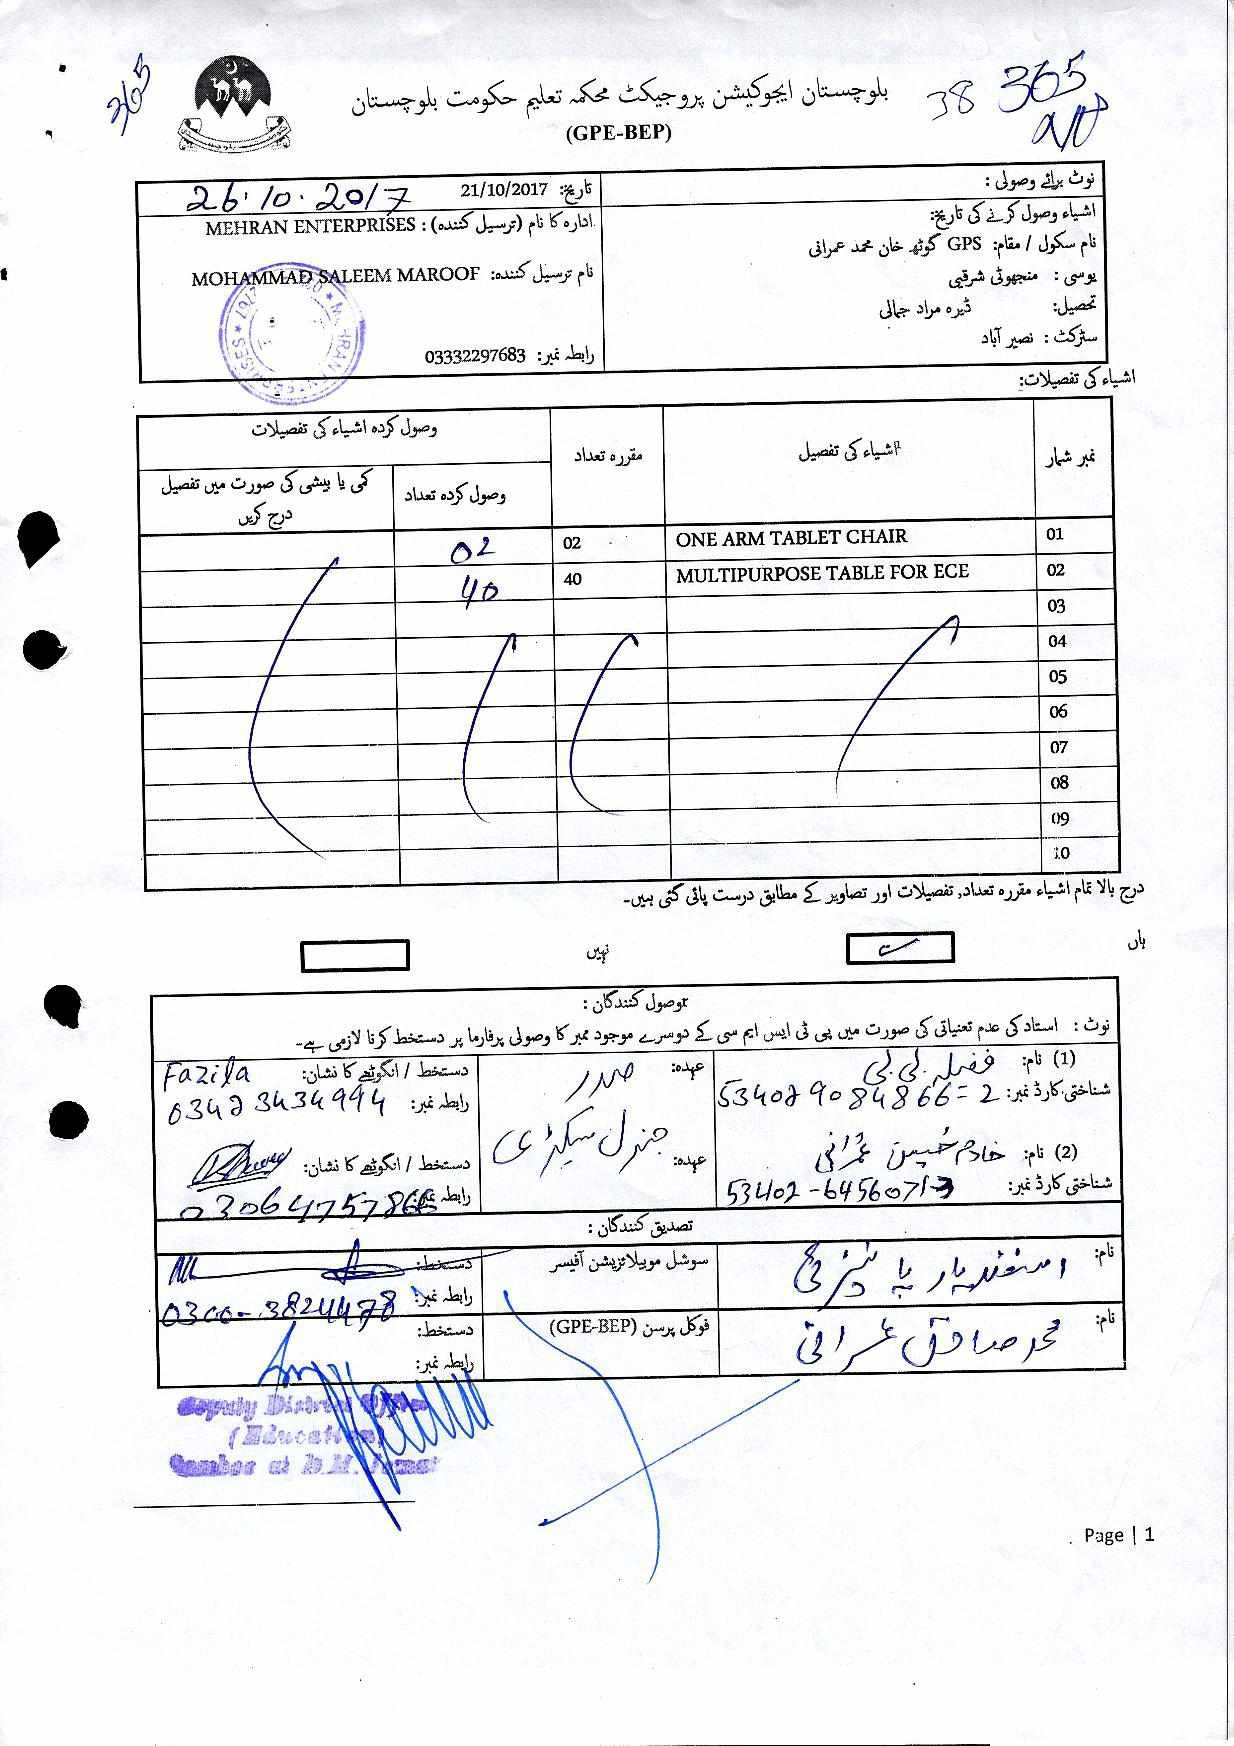 365
بلوچستان ایجوکیشن پروجیکٹ محکمہ تعلیم حکومت بلوچستان
38 365
(GPE-BEP)
نوٹ برائے وصولی :
اشیاء وصول کرنے کی تاریخ:
نام سکول / مقام: GPS گوٹھ خان محمد عمرانی
یوسی : منجھوٹی شرقی
تحصیل: ڈیرہ مراد جمالی
سٹرکٹ : نصیر آباد
تاریخ: 21/10/2017 26.10.2017
ادارہ کا نام (ترسیل کنندہ) : MEHRAN ENTERPRISES
نام ترسیل کنندہ: MOHAMMAD SALEEM MAROOF
رابطہ نمبر: 03332297683
اشیاء کی تفصیلات:
نمبر شمار اشیاء کی تفصیل مقررہ تعداد وصول کردہ اشیاء کی تفصیلات
وصول کردہ تعداد کمی یا بیشی کی صورت میں تفصیل درج کریں
01 ONE ARM TABLET CHAIR 02 02
02 MULTIPURPOSE TABLE FOR ECE 40 40
03
04
05
06
07
08
09
10
درج بالا تمام اشیاء مقررہ تعداد, تفصیلات اور تصاویر کے مطابق درست پائی گئی ہیں۔
ہاں نہیں
وصول کنندگان :
نوٹ : استاد کی عدم تعیناتی کی صورت میں پی ٹی ایس ایم سی کے دوسرے موجود ممبر کا وصولی پرفارما پر دستخط کرنا لازمی ہے۔
(1) نام: فضیلہ بی بی عہدہ: صدر دستخط / انگوٹھے کا نشان: Fazila
شناختی کارڈ نمبر: 534029084866=2 رابطہ نمبر: 03423434994
(2) نام: خادم حسین عمرانی عہدہ: جنرل سیکرٹری دستخط / انگوٹھے کا نشان:
شناختی کارڈ نمبر: رابطہ نمبر:
تصدیق کنندگان :
نام: اسفندیار سوشل موبیلائزیشن آفیسر دستخط:
رابطہ نمبر: 0300-3824478
نام: محمد صادق عمرانی فوکل پرسن (GPE-BEP) دستخط:
رابطہ نمبر:
Deputy District Officer
(Education)
Page | 1